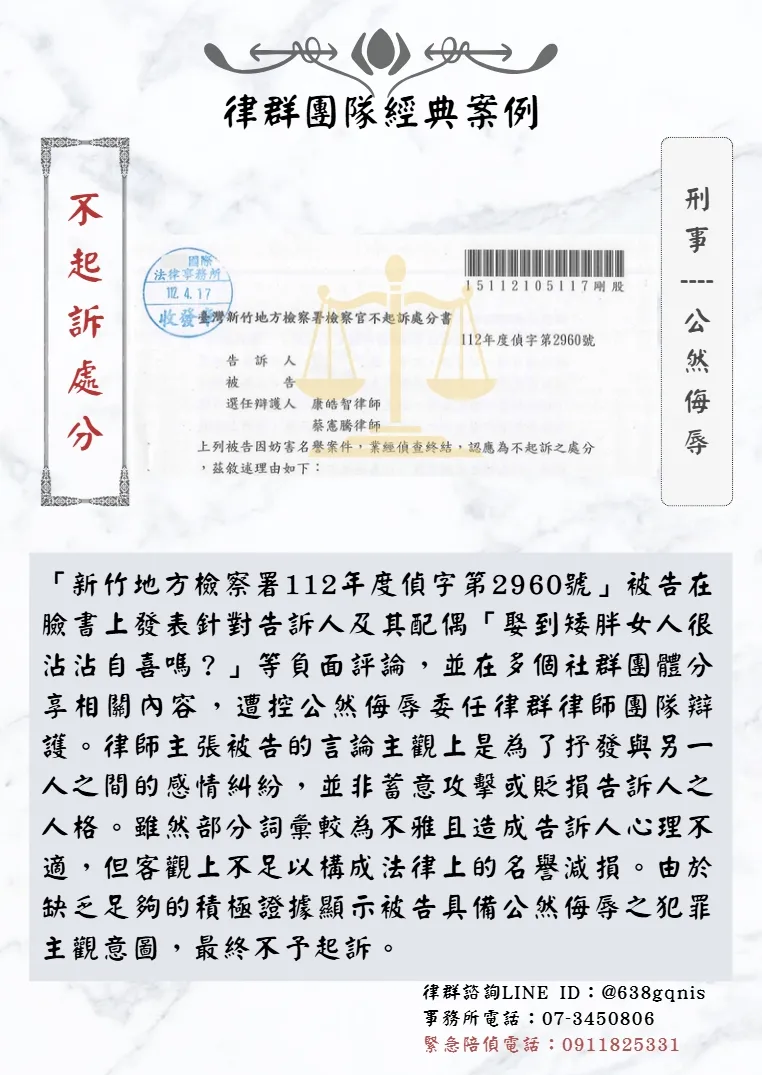 律群團隊經典案例
不起訴處分
刑事----公然侮辱
國際
法律事務所
112. 4. 17
收發章
15112105117剛股
臺灣新竹地方檢察署檢察官不起訴處分書
112年度偵字第2960號
告訴人
被告
選任辯護人 康皓智律師
蔡憲騰律師
上列被告因妨害名譽案件,業經偵查終結,認應為不起訴之處分
,茲敘述理由如下:
「新竹地方檢察署112年度偵字第2960號」被告在
臉書上發表針對告訴人及其配偶「娶到矮胖女人很
沾沾自喜嗎?」等負面評論,並在多個社群團體分
享相關內容,遭控公然侮辱委任律群律師團隊辯
護。律師主張被告的言論主觀上是為了抒發與另一
人之間的感情糾紛,並非蓄意攻擊或貶損告訴人之
人格。雖然部分詞彙較為不雅且造成告訴人心理不
適,但客觀上不足以構成法律上的名譽減損。由於
缺乏足夠的積極證據顯示被告具備公然侮辱之犯罪
主觀意圖,最終不予起訴。
律群諮詢LINE ID:@638gqnis
事務所電話:07-3450806
緊急陪偵電話:0911825331